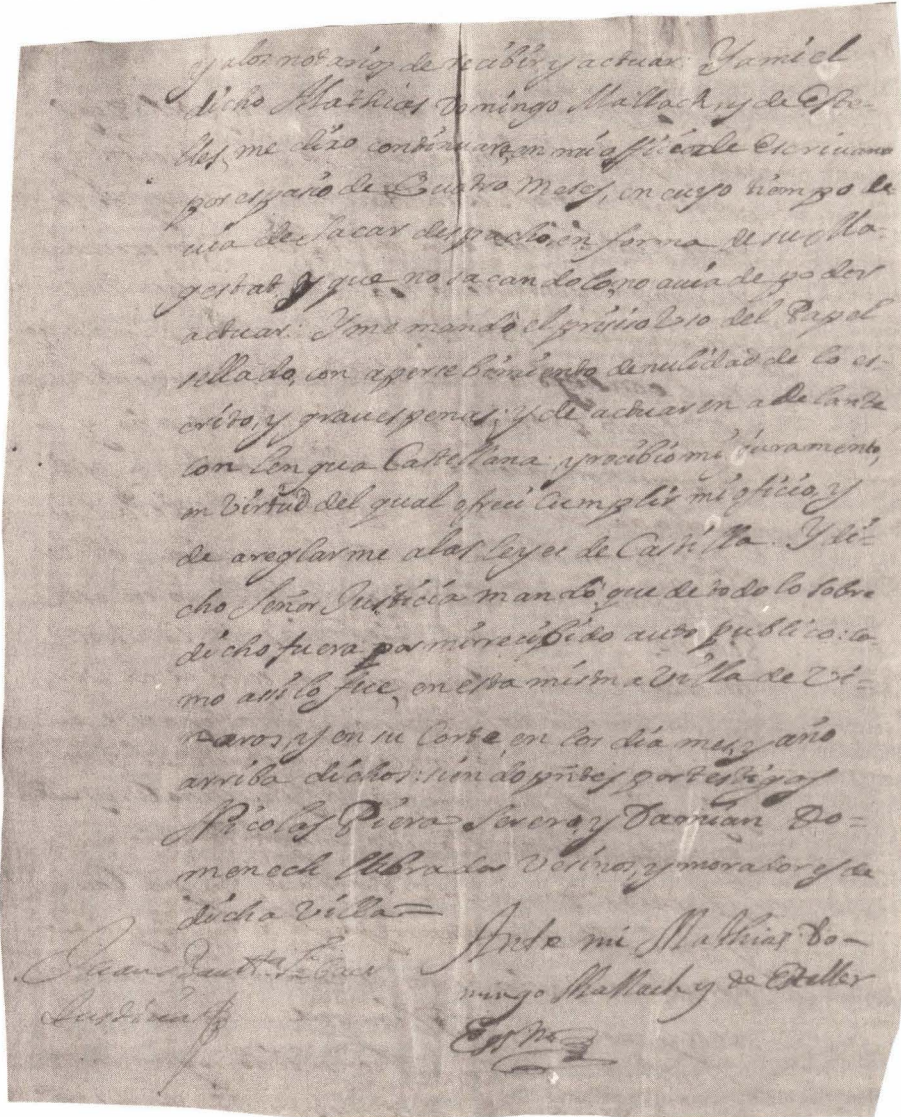 y alos notarios de recibir y actuar: Y a mi el
dicho Mathias Domingo Mallach y de Este-
ller, me dixo continuara en mi officio de Escrivano
por espacio de Cuatro meses, en cuyo tiempo de
via de sacar despacho en forma de su Ma-
gestat, y que no sacandolo, no avia de poder
actuar: Y me mandò el uso del Papel
sellado, con apercebimiento de nulidad de lo es-
crito, y graves penas; y de actuar en adelante
con lengua Castellana: y recibio mi juramento,
en virtud del qual ofreci cumplir mi oficio, y
de areglarme alas leyes de Castilla. Y di=
cho Señor Justicia mandò que de todo lo sobre
dicho fuera por mi recibido auto publico: co
mo assi lo fue, en esta misma Villa de Vi=
naros, y en su Corte en los dia mes, y año
arriba dichos: siendo pñtes por testigos
Nicolas Piera Serero, y Damian Do=
menech llabrador vesinos, y moradores de
dicha Villa=
Ante mi Mathias Do-
mingo Mallach y de Esteller
Essno
Juan Bautta Febrer
Justicia